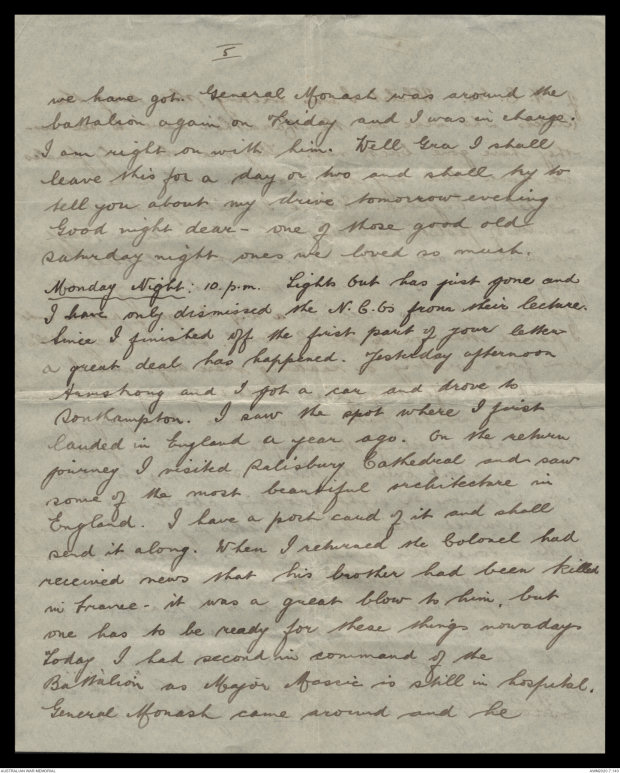 5
we have got. General Monash was around the
battalion again on Friday and I was in charge.
I am right on with him. Well Gra I shall
leave this for a day or two and shall try to
tell you about my drive tomorrow evening
Good night dear - one of those good old
saturday night ones we loved so much.
Monday Night: 10.p.m. Lights Out has just gone and
I have only dismissed the N.C.Os from their lecture.
Since I finished off the first part of your letter
a great deal has happened. Yesterday afternoon
Armstrong and I got a car and drove to
Southampton. I saw the spot where I first
landed in England a year ago. On the return
journey I visited Salisbury Cathedral and saw
some of the most beautiful architecture in
England. I have a post card of it and shall
send it along. When I returned the Colonel had
received news that his brother had been killed
in France - it was a great blow to him, but
one has to be ready for these things nowadays
Today I had second in command of the
Battalion as Major Massie is still in hospital.
General Monash came around and he
AUSTRALIAN WAR MEMORIAL
AWM2020.7.143